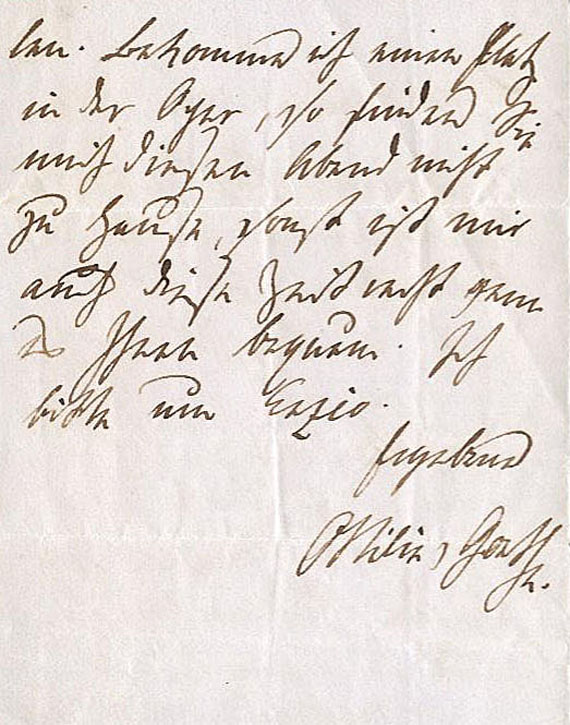 len. Bekomme ich einen Platz
in der Oper, so finden Sie
mich diesen Abend nicht
zu Hause, sonst ist mir
auch diese Zeit recht
Ihnen bequem. Ich
bitte um
Ergebend
Ottilie v Goethe